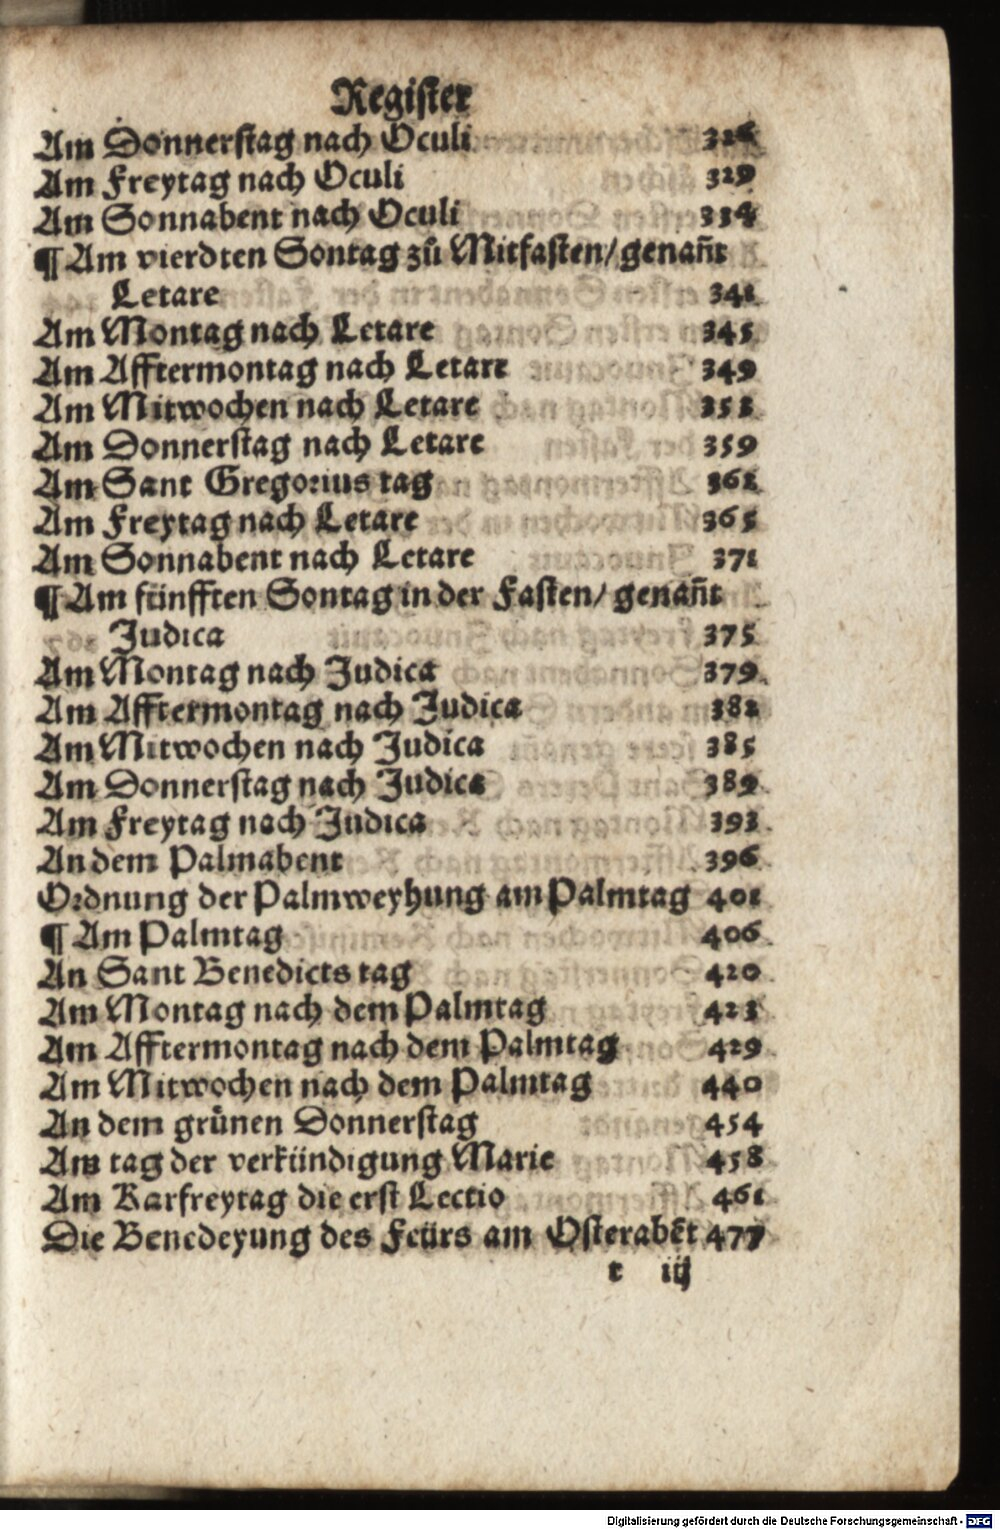 Register
Am Donnerstag nach Oculi 326
Am Freytag nach Oculi 329
Am Sonnabent nach Oculi 334
¶ Am vierdten Sontag zů Mitfasten/ genañt
Letare 341
Am Montag nach Letare 345
Am Afftermontag nach Letare 349
Am Mitwochen nach Letare 352
Am Donnerstag nach Letare 359
Am Sant Gregorius tag 362
Am Freytag nach Letare 365
Am Sonnabent nach Letare 371
¶ Am fünfften Sontag in der Fasten/ genañt
Judica 375
Am Montag nach Judica 379
Am Afftermontag nach Judica 382
Am Mitwochen nach Judica 385
Am Donnerstag nach Judica 389
Am Freytag nach Judica 393
An dem Palmabent 396
Ordnung der Palmweyhung am Palmtag 401
¶ Am Palmtag 406
An Sant Benedicts tag 420
Am Montag nach dem Palmtag 423
Am Afftermontag nach dem Palmtag 429
Am Mitwochen nach dem Palmtag 440
An dem grůnen Donnerstag 454
Am tag der verkündigung Marie 458
Am Karfreytag die erst Lectio 461
Die Benedeyung des Feürs am Osterabẽt 477
t iij
Digitalisierung gefördert durch die Deutsche Forschungsgemeinschaft - DFG